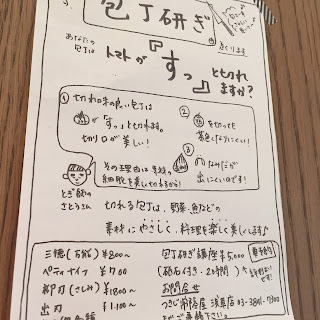 包丁研ぎ
承ります
あなたの
包丁は
トマトが『すっ』と切れ
ますか?
① 切れ味の良い包丁は
が"すっ"と切れます。
切り口が美しい!
②
を切っても
③
なみだが
出にくいです!
その理由は食材の
細胞を美しく切れるから!
とぎ師の
さとうさん
切れる包丁は、野菜、魚などの
素材にやさしく、料理を楽しく美しく♪
三徳(万能) ¥800〜
ペティナイフ ¥700
柳刃(さしみ) ¥1800〜
出刃 ¥1.100〜
包丁研ぎ講座 ¥5,000
要予約
(砥石付き・2時間)
お問合せ